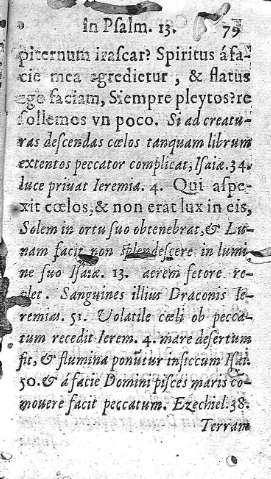 in Psalm. 13. 79
piternum irascar? Spiritus á fa-
cie mea egredietur, & flatus
ego faciam, Siempre pleytos? re
sollemos vn poco. Si ad creatu-
ras descendas cœlos tanquam librum
extentos peccator complicat, Isaiæ. 34.
luce priuat Ieremia. 4. Qui aspe-
xit cœlos, & non erat lux in eis,
Solem in ortu suo obtenebrat, & Lu-
nam facit non splendescere in lumi-
ne suo Isaiæ. 13. aerem fetore re-
plet. Sanguines illius Draconis Ie-
remiæ. 51. Volatile cœli ob pecca-
tum recedit Ierem. 4. mare desertum
fit, & flumina ponūtur in siccum Isai.
50. & á facie Domini pisces maris co-
mouere facit peccatum. Ezechiel. 38.
Terram